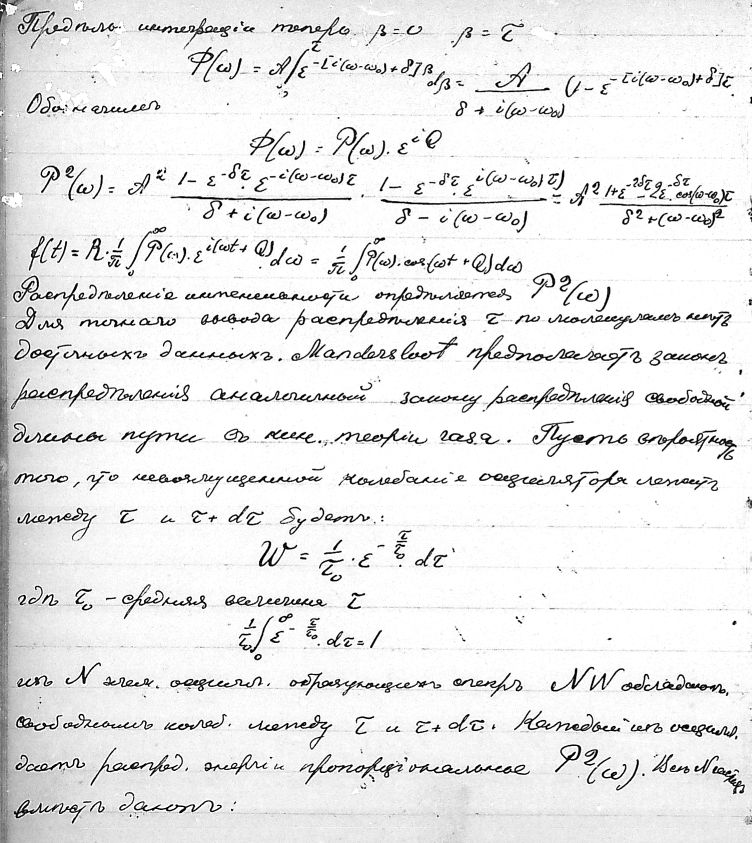 Предѣлы интеграціи теперь β=0 β = τ
Φ(ω) = A∫₀^τ ε^{-[i(ω-ω₀)+δ]β} dβ = A / (δ + i(ω-ω₀)) (1 - ε^{-[i(ω-ω₀)+δ]τ}
Обозначимъ
Φ(ω) = P(ω). ε^{iQ}
P²(ω) = A² (1 - ε^{-δτ}. ε^{-i(ω-ω₀)τ}) / (δ + i(ω-ω₀)) · (1 - ε^{-δτ}. ε^{i(ω-ω₀)τ}) / (δ - i(ω-ω₀)) = A² (1+ε^{-2δτ} - 2ε^{-δτ}. cos(ω-ω₀)τ) / (δ²+(ω-ω₀)²)
f(t) = R·1/π ∫₀^∞ P(ω). ε^{i(ωt+Q)} dω = 1/π ∫₀^∞ P(ω). cos(ωt + Q) dω
Распредѣленіе интенсивности опредѣляется P²(ω)
Для точнаго вывода распредѣленія τ по молекуламъ нѣтъ
досточныхъ данныхъ. Mandersloot предполагаетъ законъ
распредѣленія аналогичный закону распредѣленія свободной
длины пути въ кин. теоріи газа. Пусть вѣроятность
того, что невозмущенной колебаніе осцилятора лежитъ
между τ и τ + dτ будетъ:
W = 1/τ₀ · ε^{-τ/τ₀}. dτ
гдѣ τ₀ - средняя величина τ
1/τ₀ ∫₀^∞ ε^{-τ/τ₀}. dτ = 1
изъ N элем. осцилл. образующихъ спектръ NW обладаютъ
свободнымъ колеб. между τ и τ + dτ. Каждый изъ осцилл.
даетъ распред. энергіи пропорціональное P²(ω). Всѣ N
вмѣстѣ даютъ: